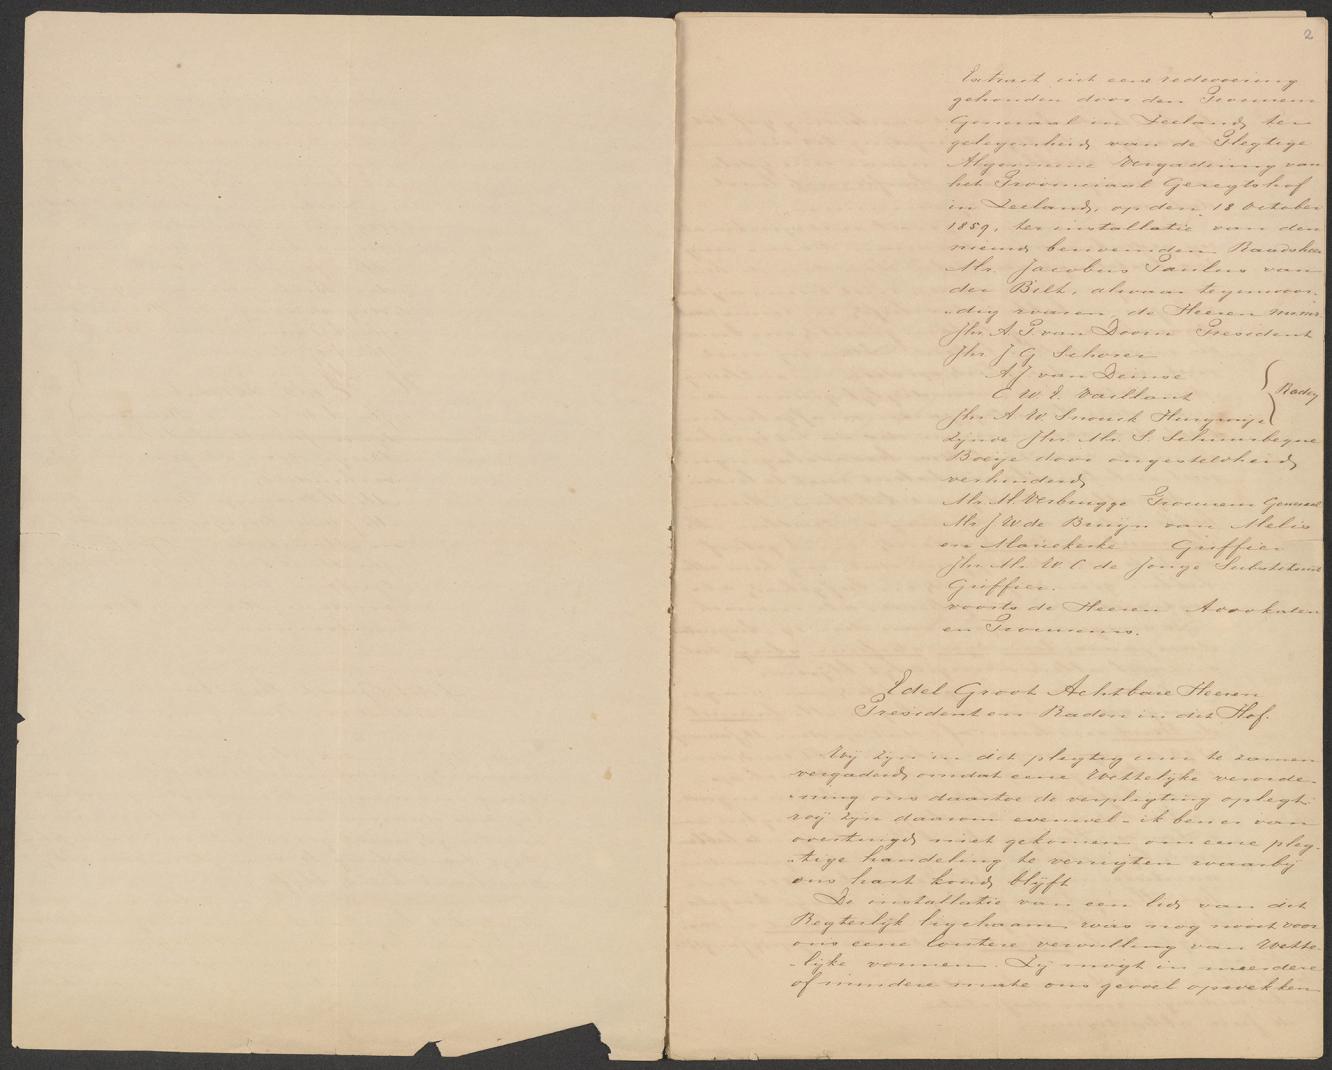 2
Extract uit eene redevoering
gehouden door den Procureur
Generaal in Zeeland, ter
gelegenheid van de Plegtige
Algemeene Vergadering van
het Provinciaal Geregtshof
in Zeeland, op den 18 October
1859, ter installatie van den
nieuw benoemden Raadsheer
Mr. Jacobus Paulus van
der Bilt, alwaar tegenwoor-
-dig waren de Heeren
Jhr. A. P. van Doorn President
Jhr J. G. Schorer
A J van Deinse
C W E Vaillant
Raden
Jhr A. W. Snouck Hurgronje
zijnde Jhr. Mr. S. Schuurbeque
Boeije door ongesteldheid
verhinderd
Mr. M. Verbrugge Procureur Generaal
Mr J W de Bruijn van Melis
en Mariekerke Griffier
Jhr. Mr. W. C. de Jonge Substituut
Griffier.
voorts de Heeren Advokaten
en Procureurs.
Edel Groot Achtbare Heeren
President en Raden in dit Hof.
Wij zijn in dit plegtig uur te zamen
vergaderd omdat eene Wettelijke verorde-
-ning ons daartoe de verpligting oplegt
wij zijn daarom evenwel - ik ben er van
overtuigd niet gekomen om eene pleg-
-tige handeling te verrigten waarbij
ons hart koud blijft
De installatie van een lid van dit
Regterlijk ligchaam was nog nooit voor
ons eene loutere vervulling van Wette-
-lijke vormen. Zij mogt in meerdere
of mindere mate ons gevoel opwekken